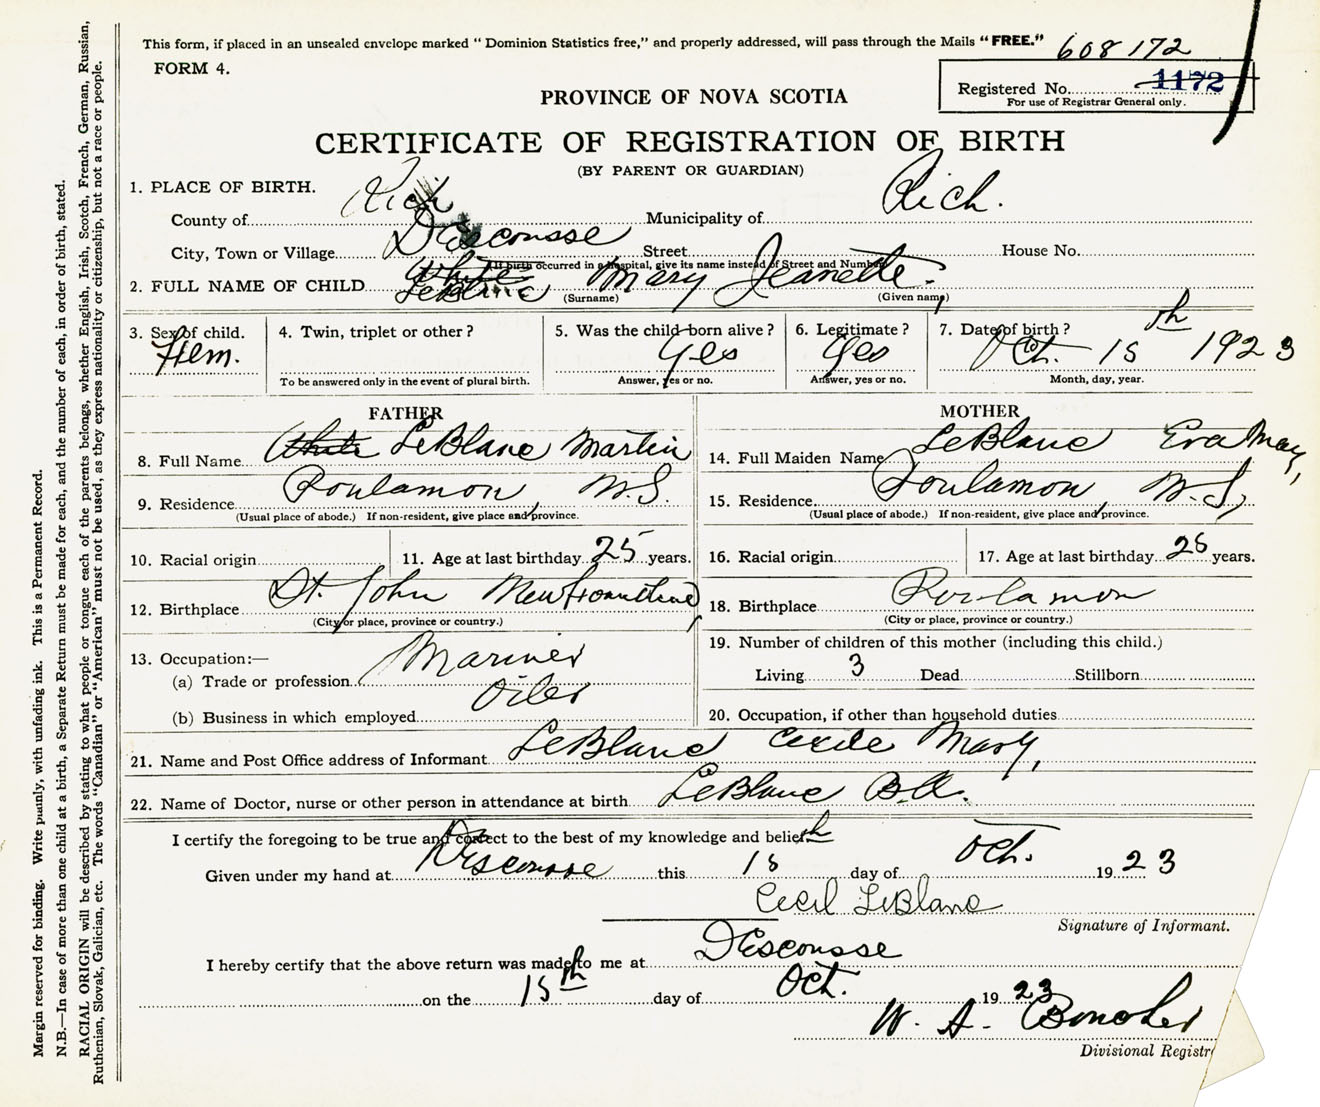 This form, if placed in an unsealed envelope marked "Dominion Statistics free," and properly addressed, will pass through the Mails "FREE."
608172
FORM 4.
Registered No. 1172
For use of Registrar General only.
PROVINCE OF NOVA SCOTIA
CERTIFICATE OF REGISTRATION OF BIRTH
(BY PARENT OR GUARDIAN)
1. PLACE OF BIRTH.
County of Rich Municipality of Rich.
City, Town or Village DEscousse Street House No.
(If birth occurred in a hospital, give its name instead of Street and Number)
White
2. FULL NAME OF CHILD LeBlanc Mary Jeanette.
(Surname) (Given name)
3. Sex of child. 4. Twin, triplet or other? 5. Was the child born alive? 6. Legitimate? 7. Date of birth?
Fem. Yes Yes Oct. 15th 1923
To be answered only in the event of plural birth. Answer, yes or no. Answer, yes or no. Month, day, year.
FATHER MOTHER
8. Full Name White LeBlanc Martin 14. Full Maiden Name LeBlanc Eva May,
9. Residence Poulamon, N.S. 15. Residence Poulamon, N.S,
(Usual place of abode.) If non-resident, give place and province. (Usual place of abode.) If non-resident, give place and province.
10. Racial origin 11. Age at last birthday 25 years. 16. Racial origin 17. Age at last birthday years.
12. Birthplace St. John Newfoundland, 18. Birthplace Poulamon
(City or place, province or country.) (City or place, province or country.)
13. Occupation:— 19. Number of children of this mother (including this child.)
(a) Trade or profession Mariner Living 3 Dead Stillborn
(b) Business in which employed Oiler 20. Occupation, if other than household duties
21. Name and Post Office address of Informant LeBlanc Cecile Mary,
22. Name of Doctor, nurse or other person in attendance at birth LeBlanc B.A.
I certify the foregoing to be true and correct to the best of my knowledge and belief.
Given under my hand at DEscousse this 15th day of Oct. 1923
Cecil LeBlanc
Signature of Informant.
I hereby certify that the above return was made to me at DEscousse
on the 15th day of Oct. 1923
W. A.
Divisional Registr
Margin reserved for binding. Write plainly, with unfading ink. This is a Permanent Record.
N.B.—In case of more than one child at a birth, a Separate Return must be made for each, and the number of each, in order of birth, stated.
RACIAL ORIGIN will be described by stating to what people or tongue each of the parents belongs, whether English, Irish, Scotch, French, German, Russian,
Ruthenian, Slovak, Galician, etc. The words "Canadian" or "American" must not be used, as they express nationality or citizenship, but not a race or people.